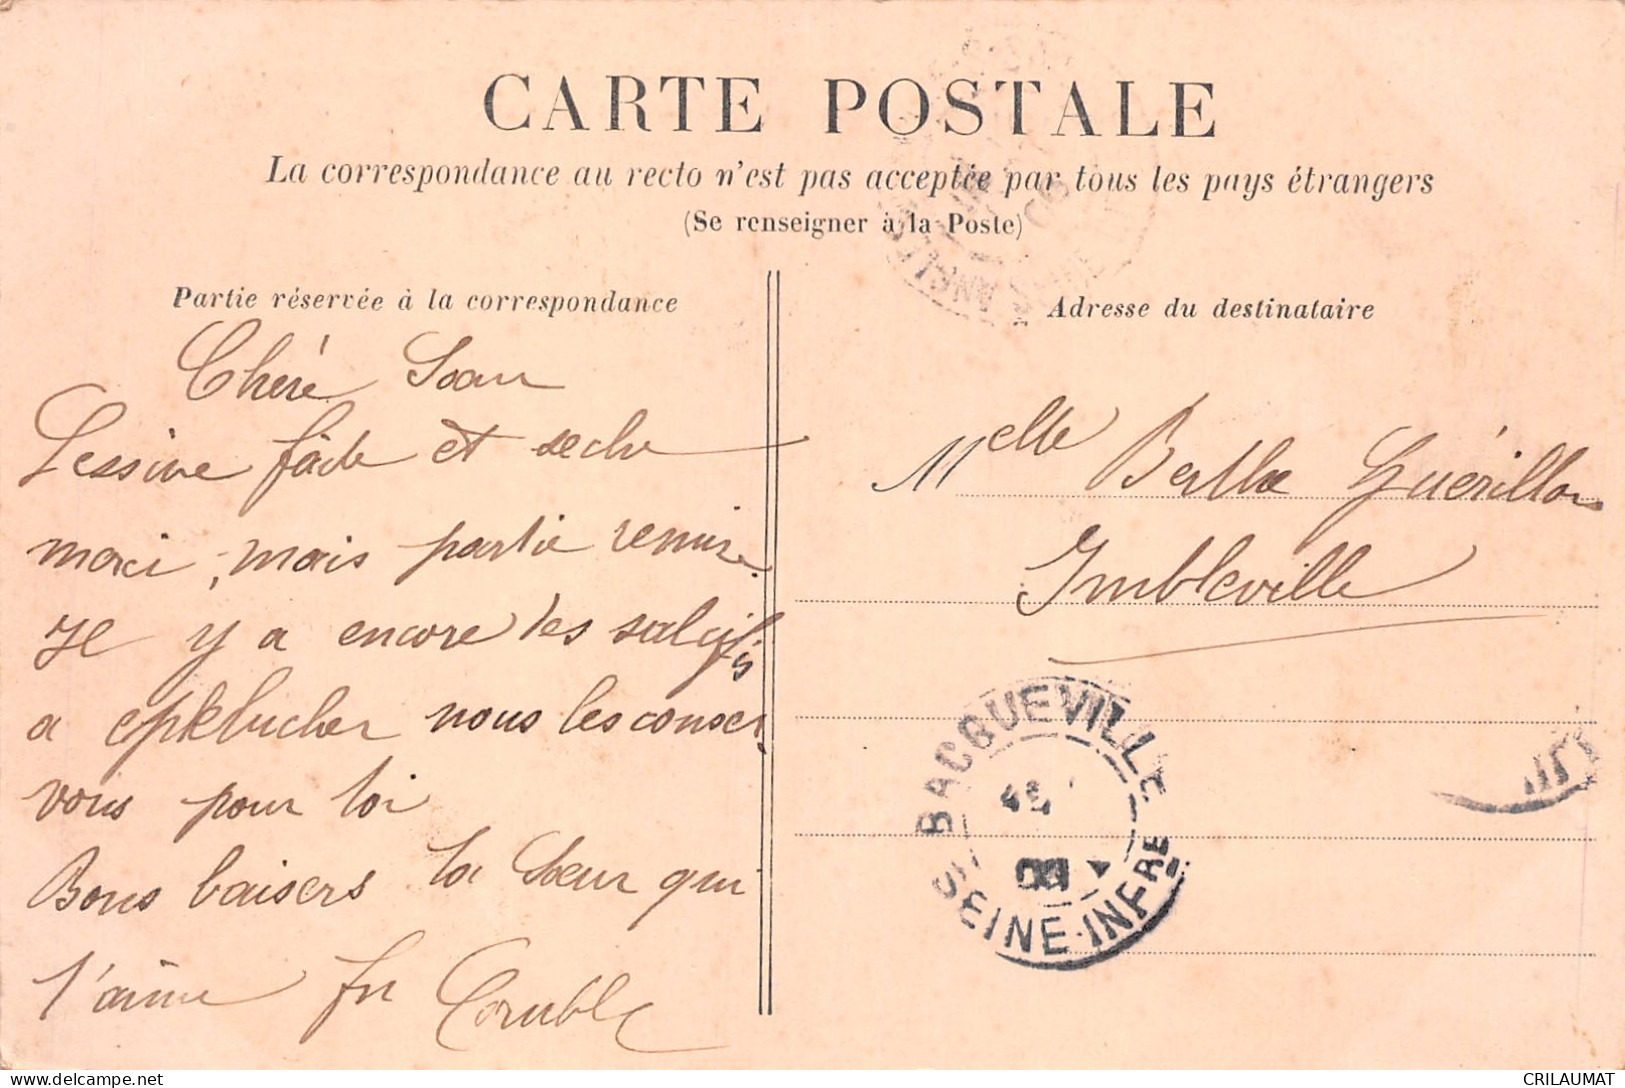 CARTE POSTALE
La correspondance au recto n'est pas acceptée par tous les pays étrangers
(Se renseigner à la Poste)
Partie réservée à la correspondance
Chère Soeur
Lessive faite et seche
merci, mais partie remise.
Il y a encore les salsifis
a epklucher nous les conser
vons pour toi
Bons baisers ta Soeur qui
t'aime
Adresse du destinataire
Melle Berthe Guérillon
Imbleville
BACQUEVILLE
SEINE-INFRE
CRILAUMAT